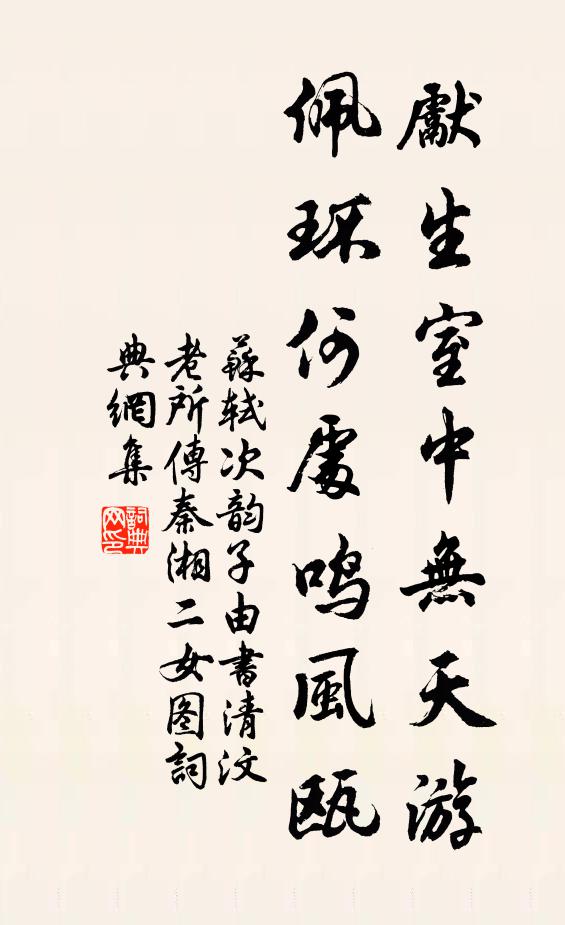 獻生室中無天游
佩环何處鸣風甌
蘇軾次韵子由書清汶
老所傳秦湘二女图詞
典網集
詞典网印